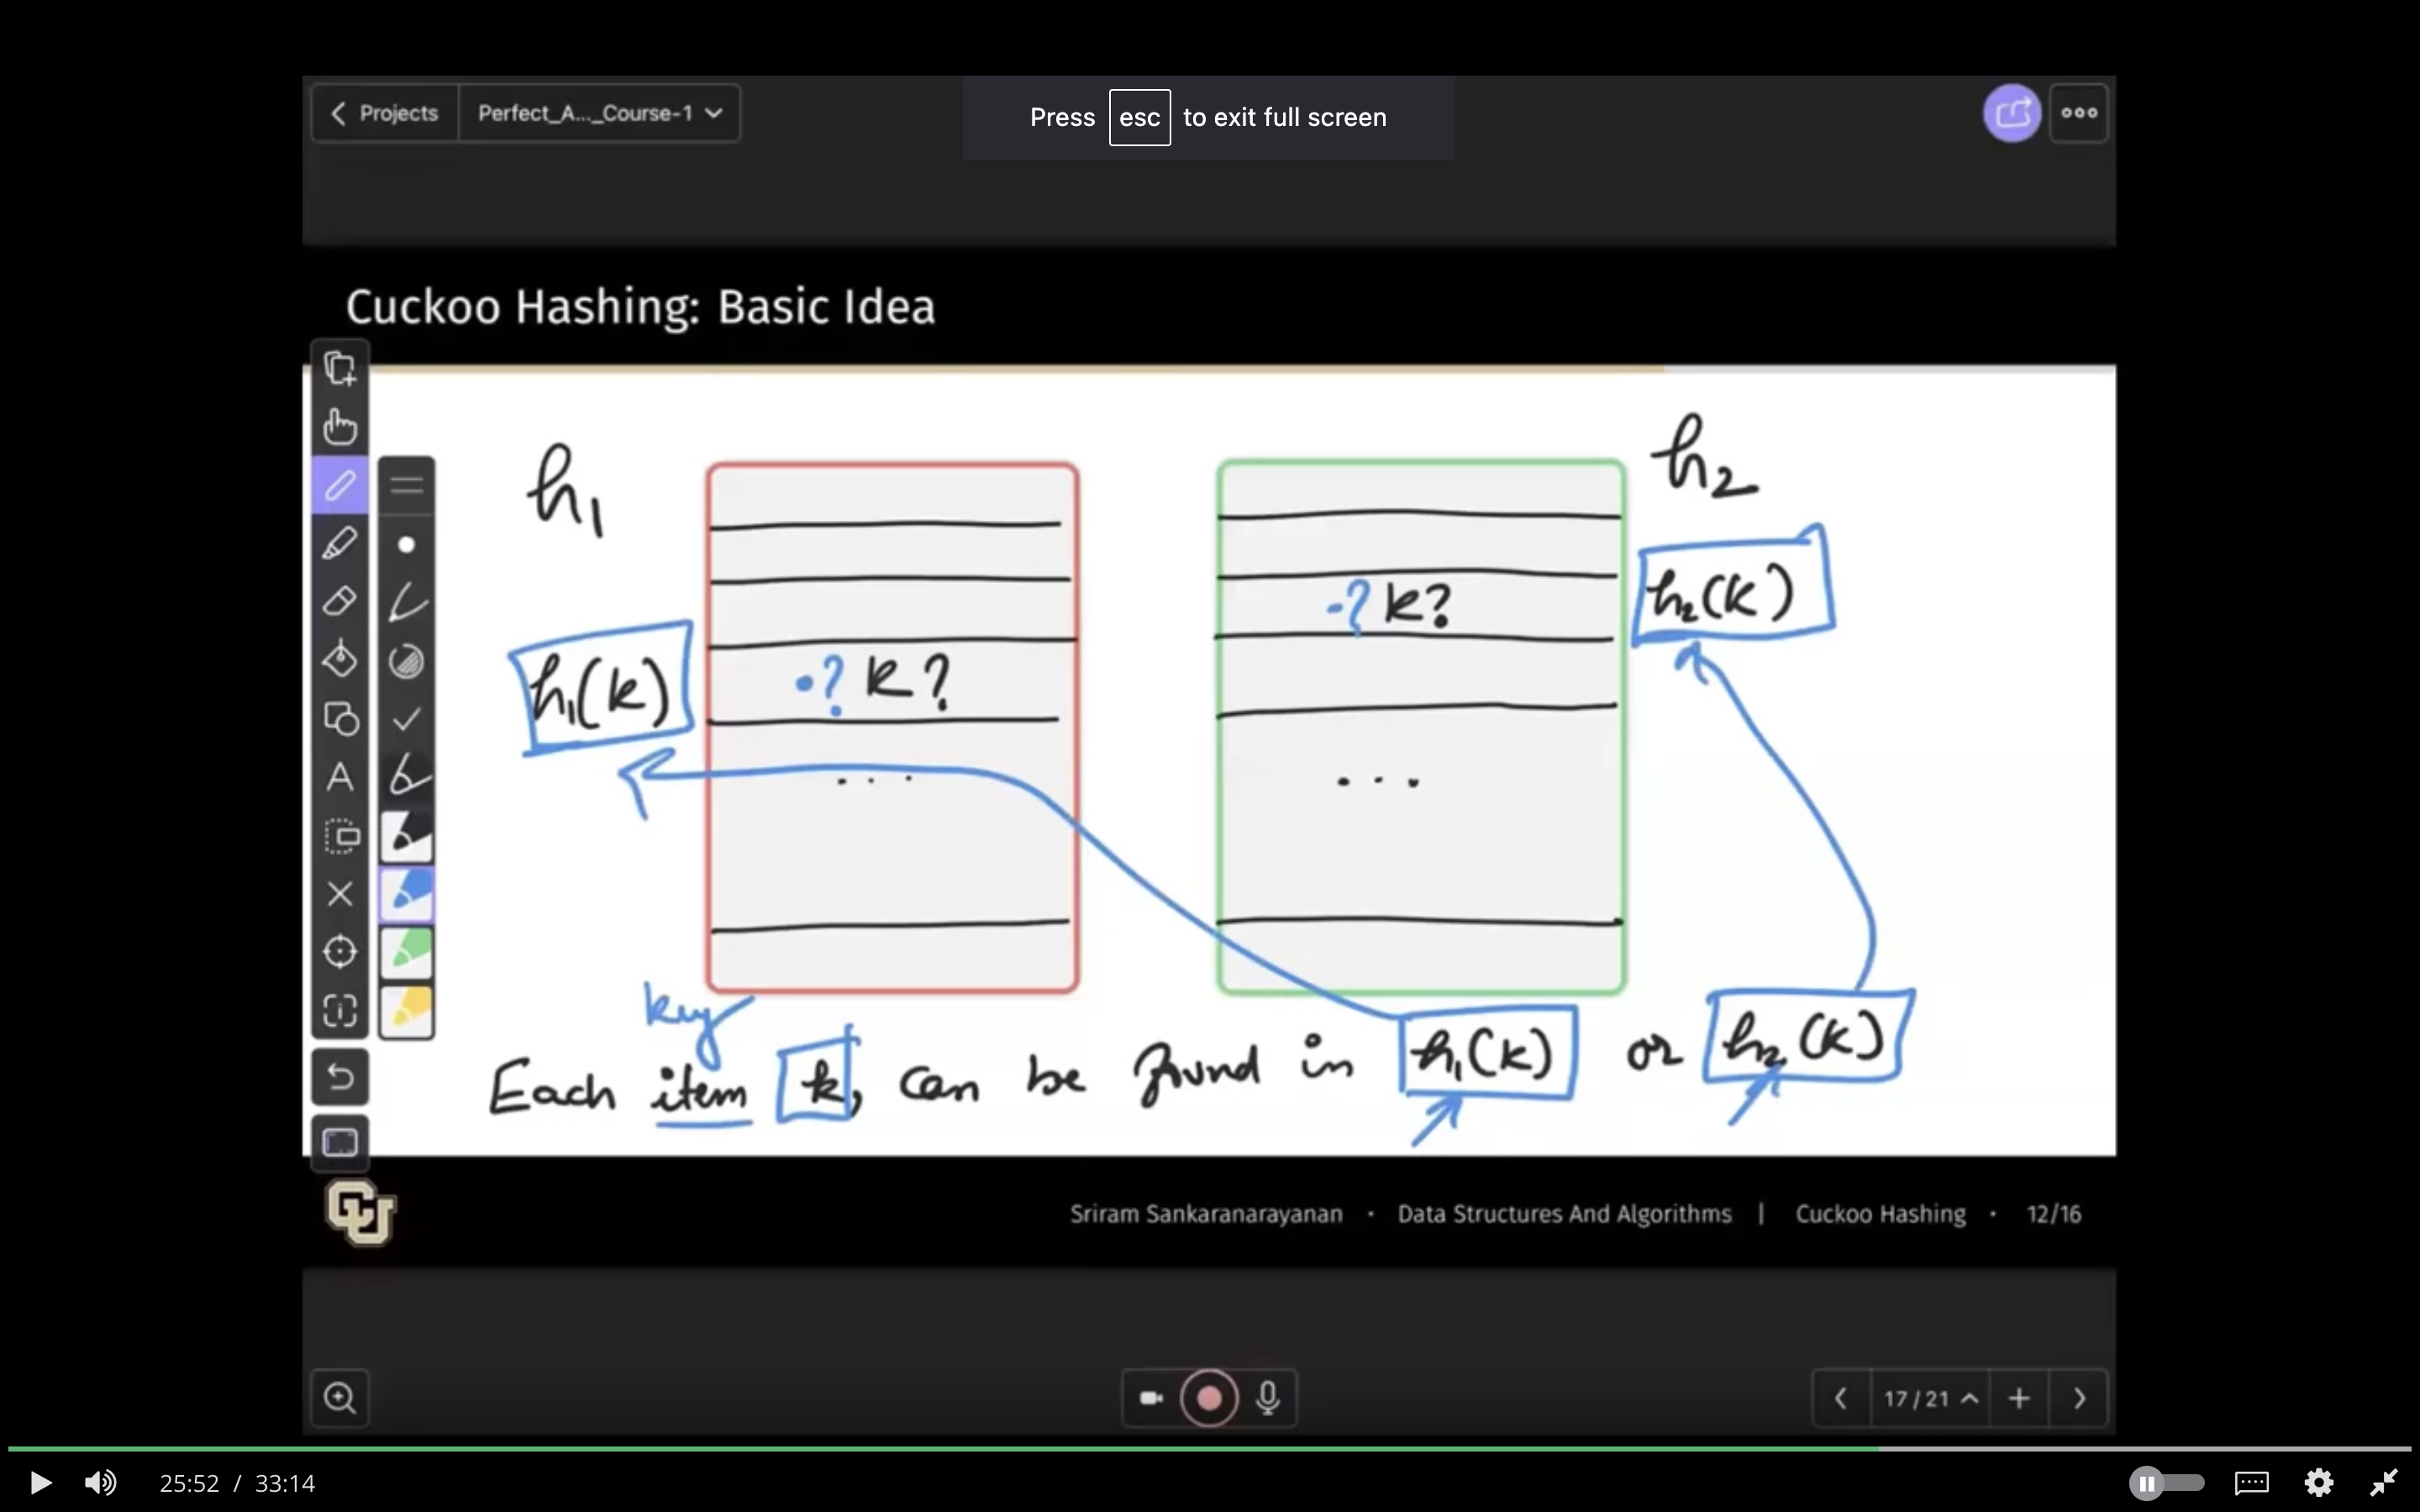 Projects Perfect_A..._Course-1
Press esc to exit full screen
Cuckoo Hashing: Basic Idea
h₁
h₂
h₂(k)
-? k?
h₁(k)
•? k?
...
...
key
Each item k, can be found in h₁(k) or h₂(k)
A
CU
Sriram Sankaranarayanan • Data Structures And Algorithms | Cuckoo Hashing • 12/16
17 / 21
25:52 / 33:14